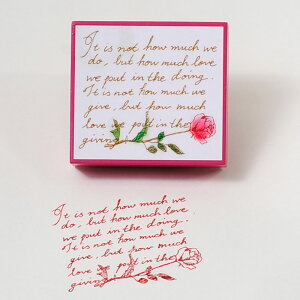 It is not how much we
do, but how much love
we put in the doing.
It is not how much we
give, but how much
love we put in the
giving.
It is not how much we
do, but how much love
we put in the doing.
It is not how much we
give, but how much
love we put in the
giving